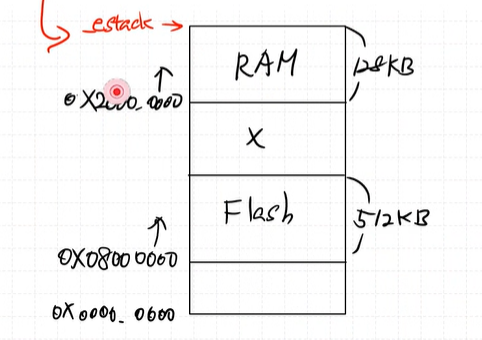 estack →
RAM
128KB
0X2000_0000
X
Flash
512KB
0X08000000
0X0000_0000